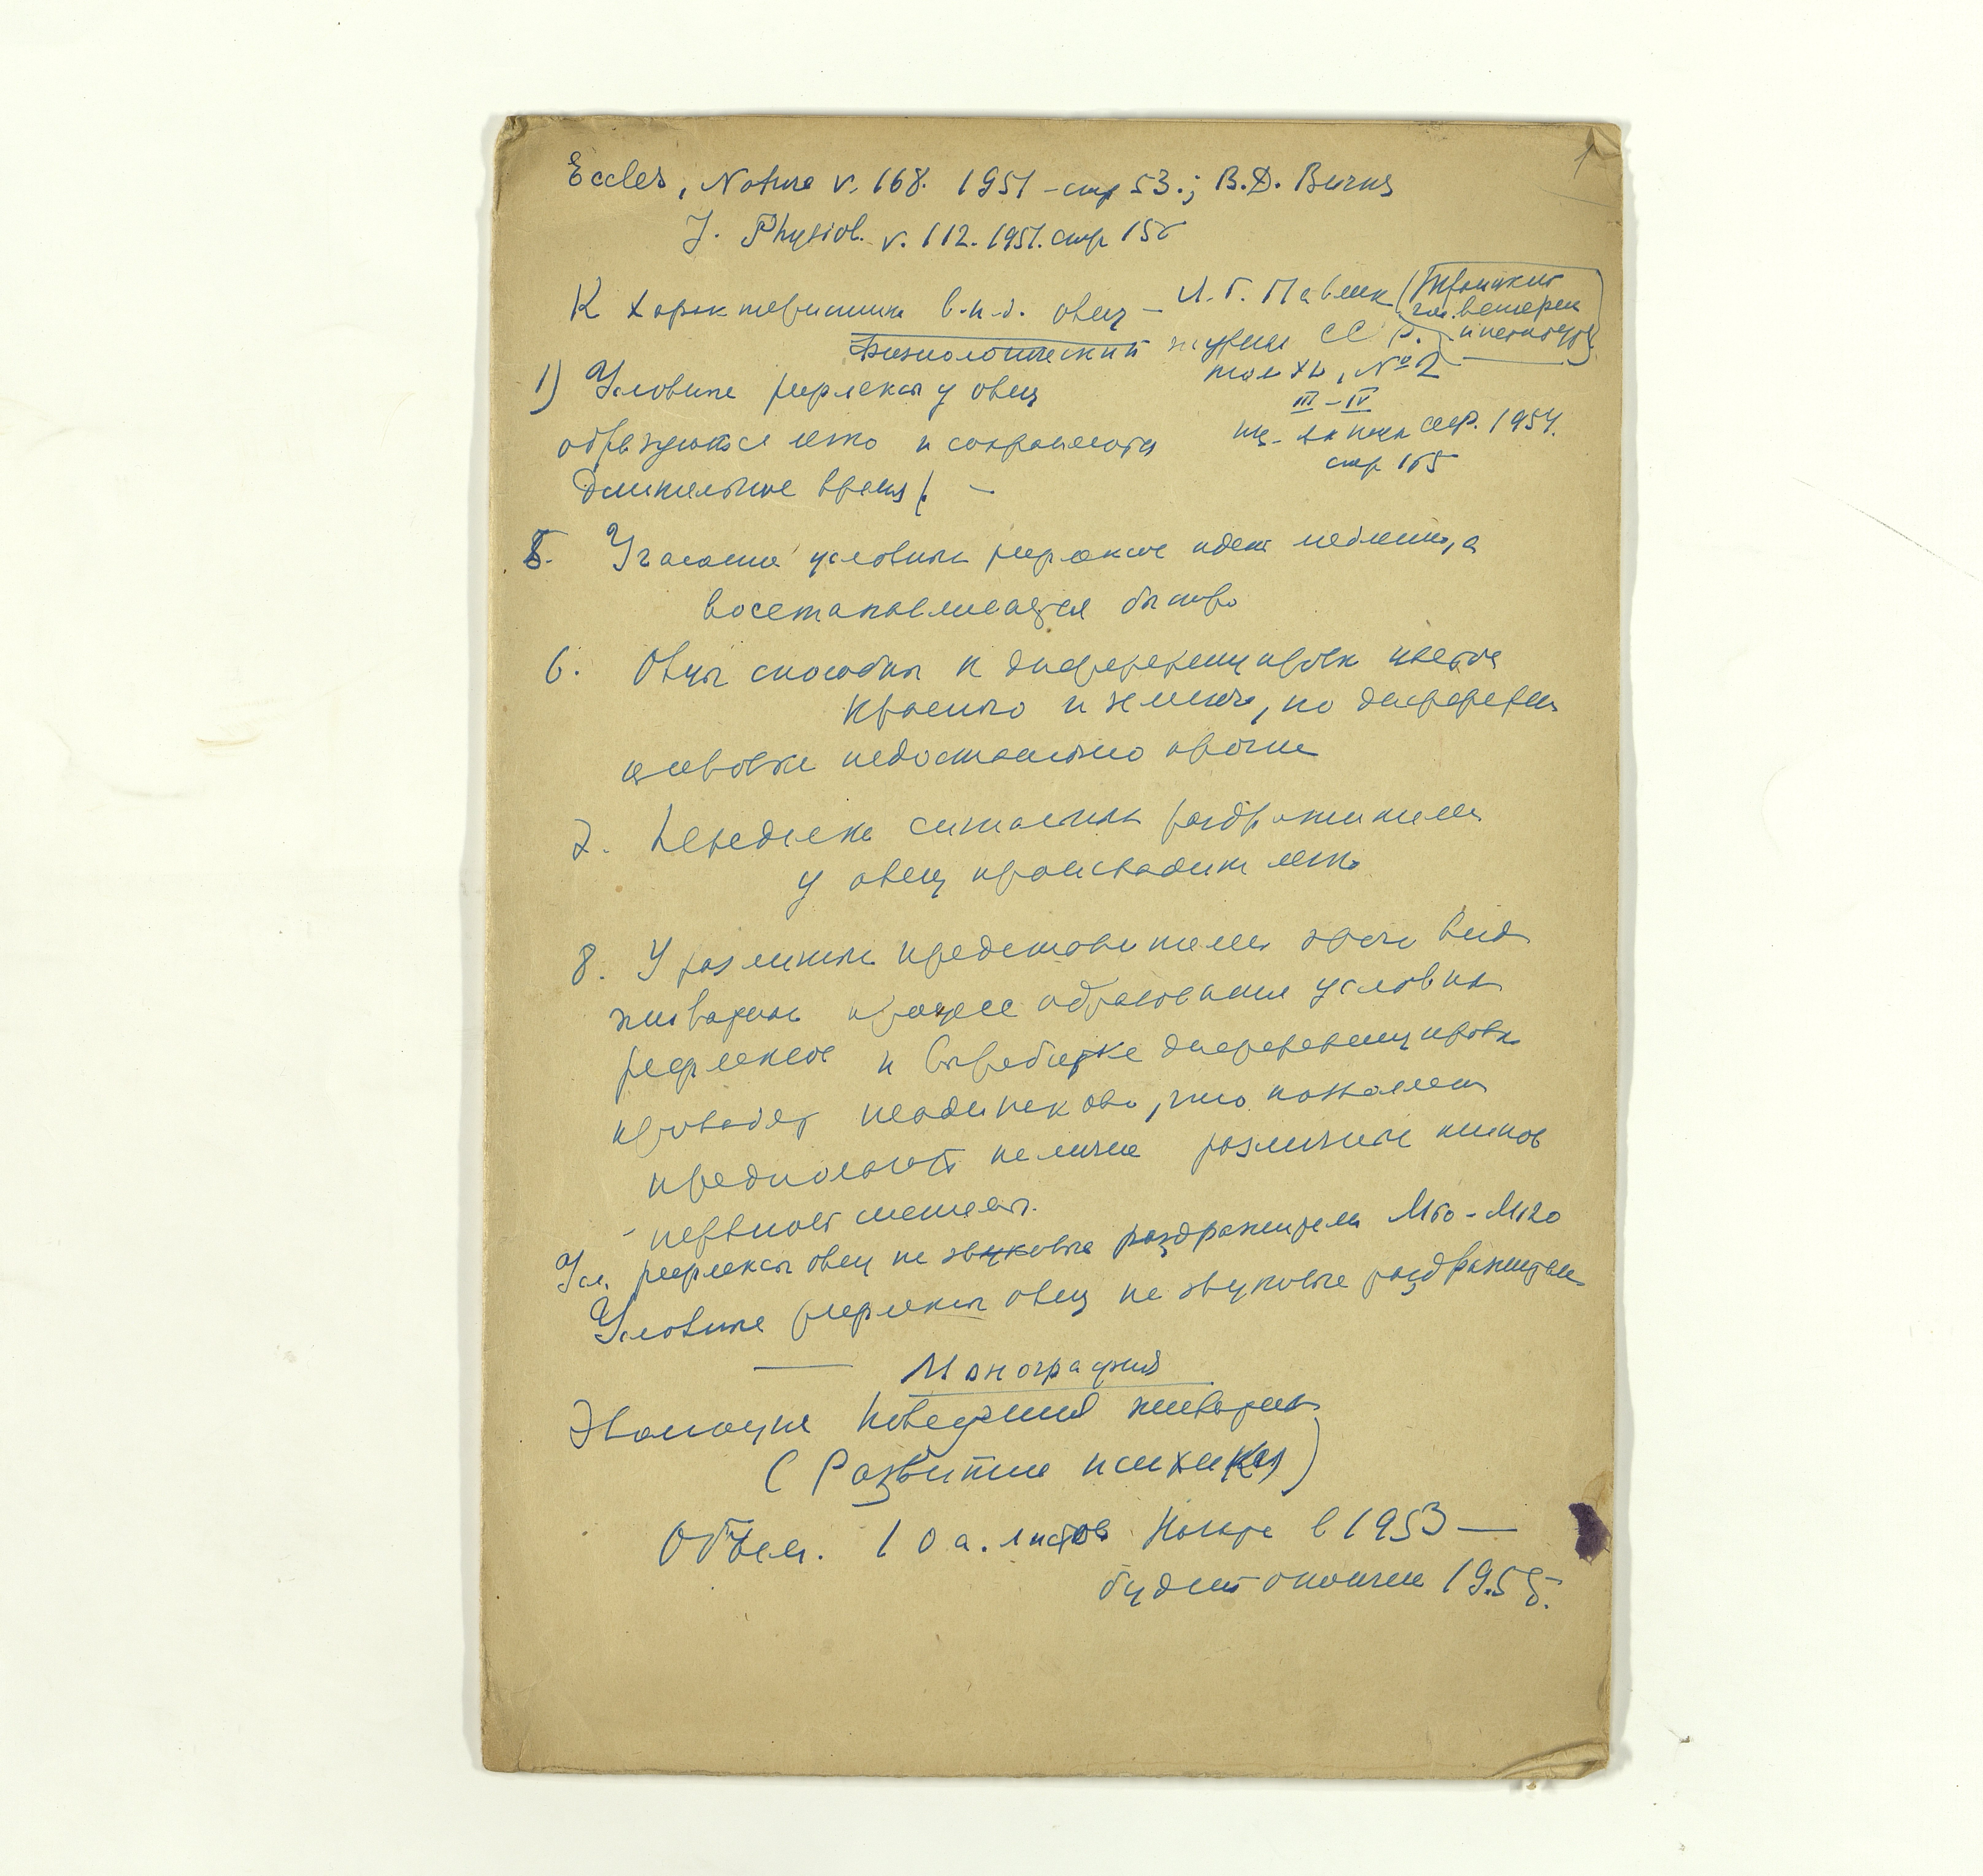 1
Eccles, Nature v. 168. 1951 - стр 53.; B.D. Burns
J. Physiol. v. 112. 1951. стр 15
К характеристике в.н.д. овец – И.Г. Павлик (Троицкий
зоо. ветерин
институт)
Физиологический журнал СССР.
том XL, № 2
III – IV
1954.
стр 165
1) Условные рефлексы у овец
образуются легко и сохраняются
длительное время. –
5. Угасание условных рефлексов идет медленно, а
восстанавливается быстро
6. Овцы способны к дифференцировке цветов
красного и зеленого, но дифферен
цировки недостаточно прочны
7. Переделка сигнальных раздражителей
у овец происходит легко
8. У различных представителей этого вида
животных процесс образования условных
рефлексов и выработке дифференцировок
проходят неодинаково, что позволяет
предполагать наличие различных типов
нервной системы.
Усл. рефлексы овец на звуковые раздражители М60 - М120
Условные рефлексы овец на звуковые раздражители
Монография
Эволюция поведения животных
(Развитие психики)
Объем. 10 а. листов Начата в 1953 —
будет окончена 1955.